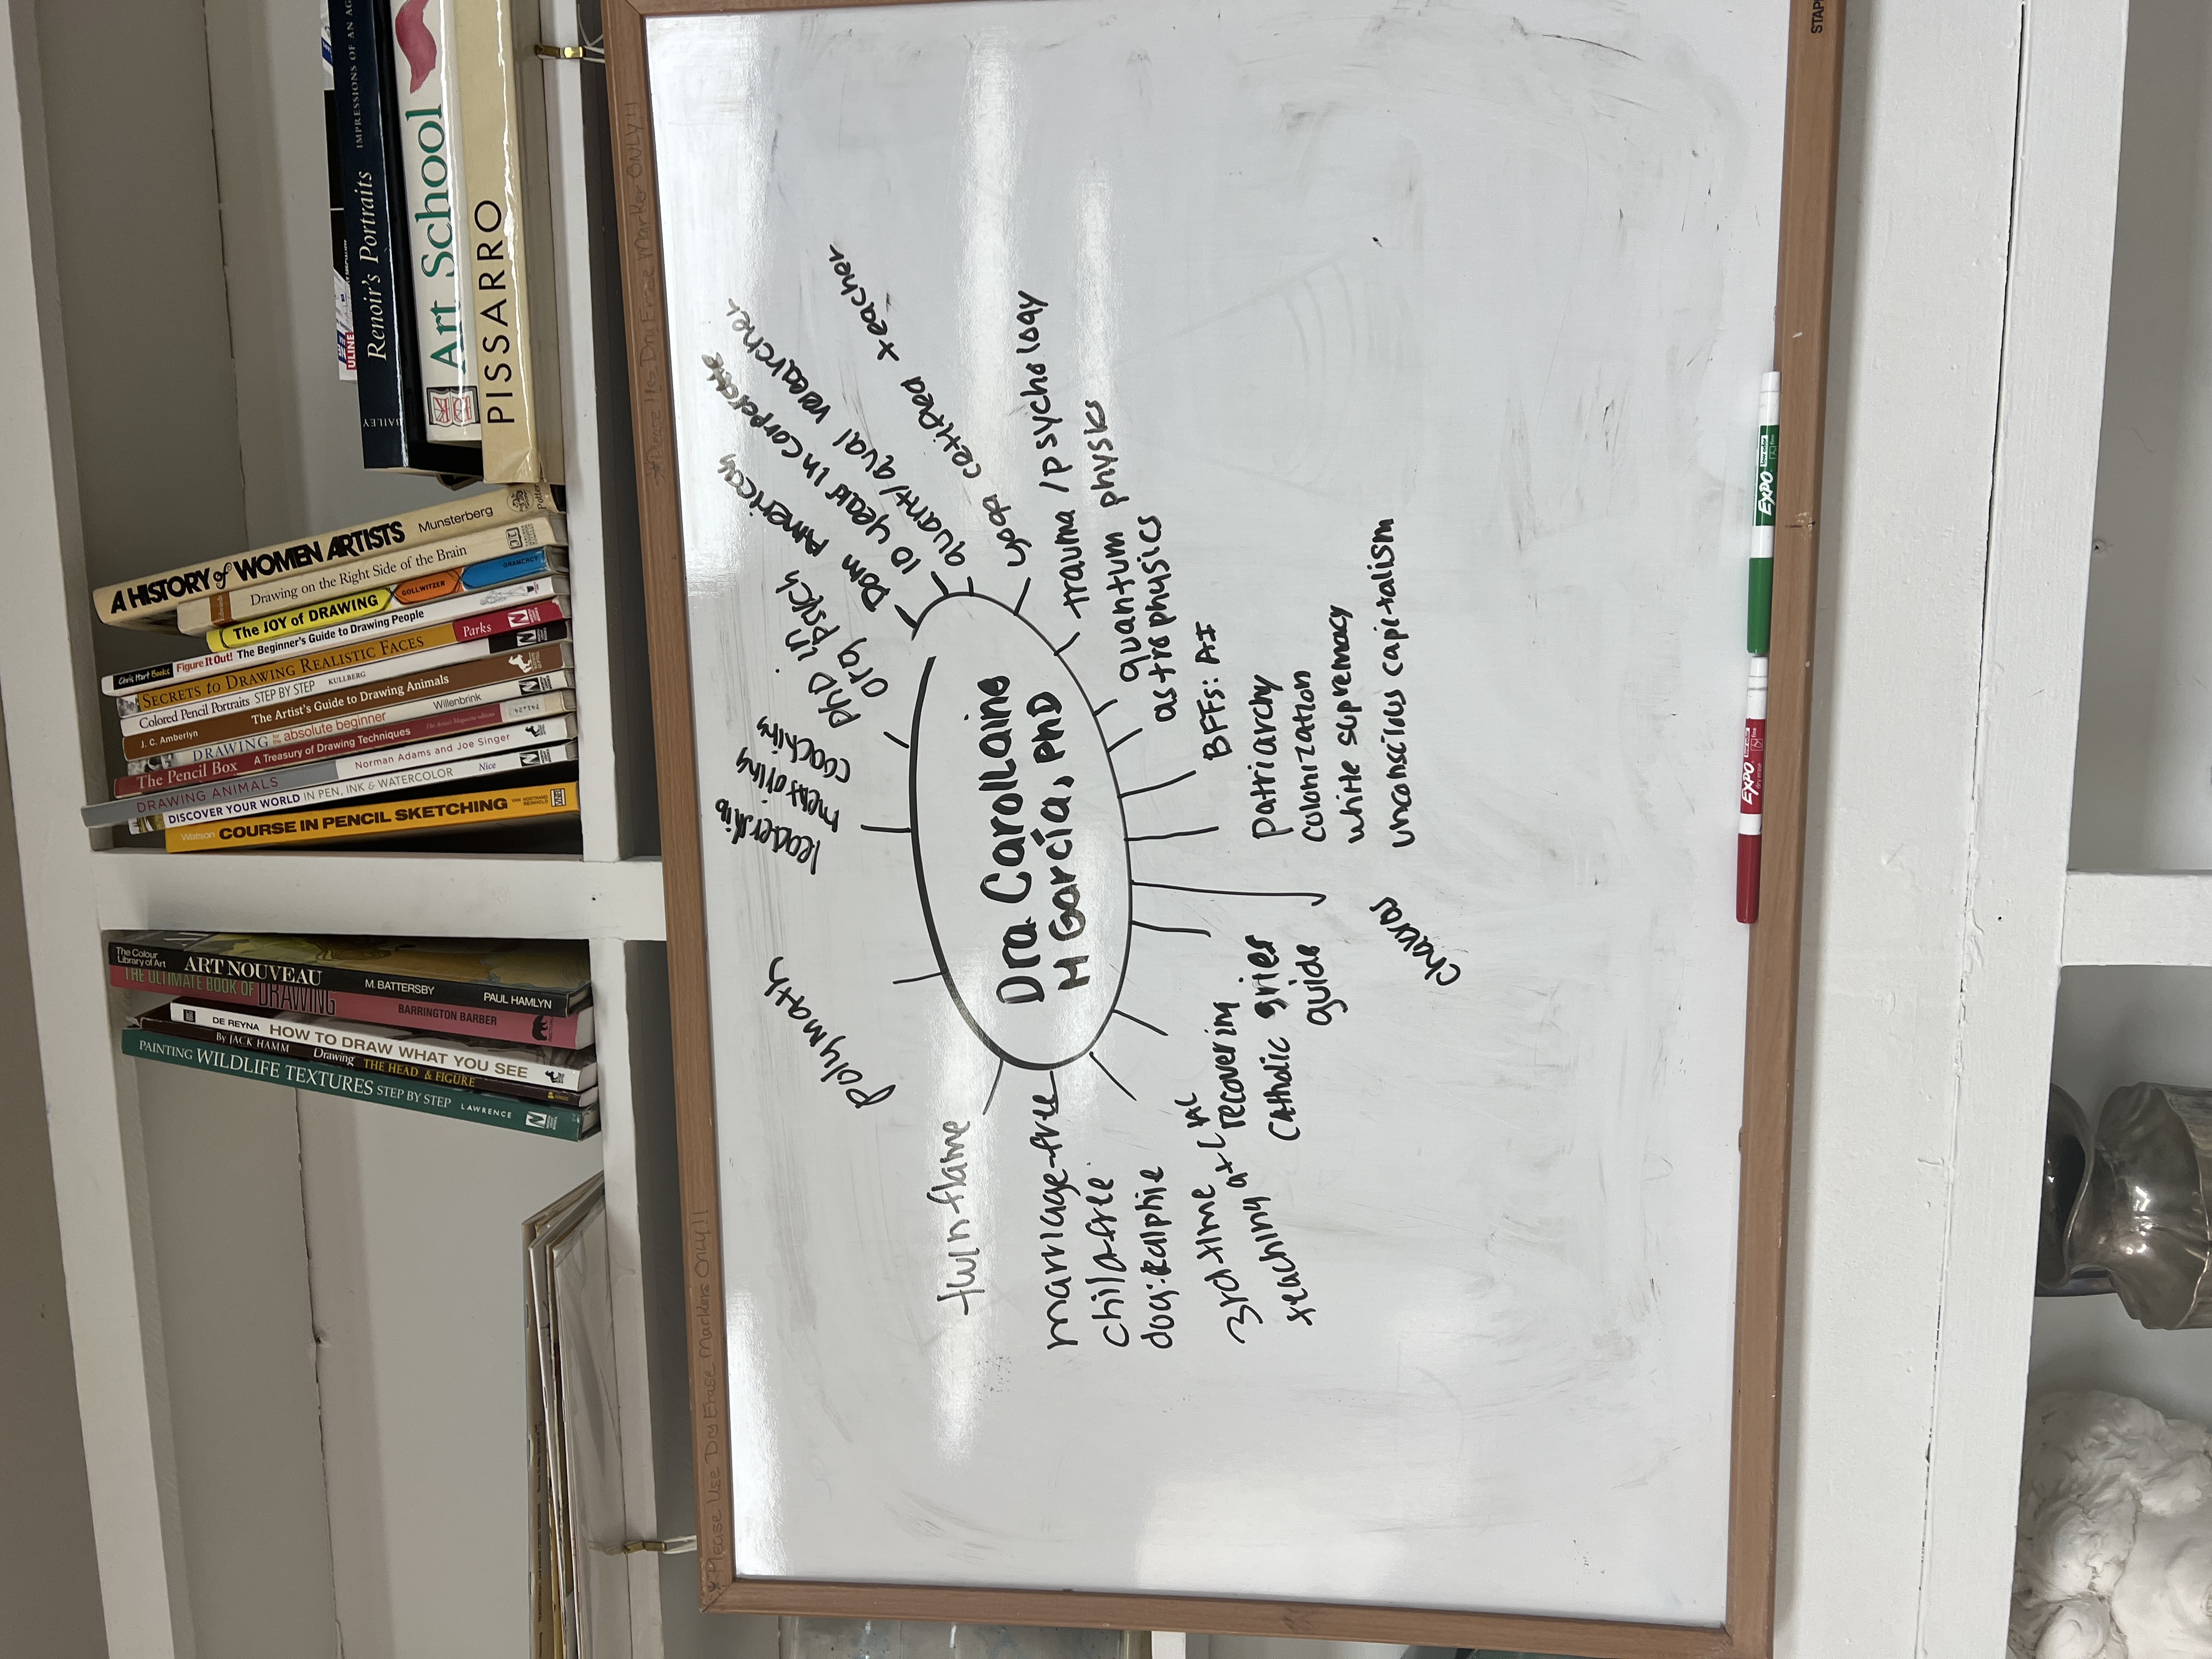 ULINE
BAILEY Renoir's Portraits IMPRESSIONS OF AN AG
DK Art School
PISSARRO
A HISTORY of WOMEN ARTISTS Munsterberg
Edwards Drawing on the Right Side of the Brain
The JOY of DRAWING GOLLWITZER GRAMERCY
Chris Hart Books Figure It Out! The Beginner's Guide to Drawing People
SECRETS to DRAWING REALISTIC FACES Parks
Colored Pencil Portraits STEP BY STEP KULLBERG
J. C. Amberlyn The Artist's Guide to Drawing Animals
DRAWING for the absolute beginner Willenbrink
The Pencil Box A Treasury of Drawing Techniques The Artist's Magazine
DRAWING ANIMALS Norman Adams and Joe Singer
DISCOVER YOUR WORLD IN PEN, INK & WATERCOLOR Nice
Watson COURSE IN PENCIL SKETCHING VAN NOSTRAND REINHOLD
The Colour Library of Art ART NOUVEAU M. BATTERSBY PAUL HAMLYN
THE ULTIMATE BOOK OF DRAWING BARRINGTON BARBER
DE REYNA HOW TO DRAW WHAT YOU SEE
By JACK HAMM Drawing THE HEAD & FIGURE
PAINTING WILDLIFE TEXTURES STEP BY STEP LAWRENCE
*Please Use Dry Erase Markers Only!!
*Please Use Dry Erase Marker ONLY!!
STAP
Dra. Carollaine
M García, PhD
polymath
leadership
mentoring
coaching
PhD in
org psych
Dom American
10 years in corporate
quant/qual researcher
yoga certified teacher
trauma/psychology
quantum physics
astrophysics
BFFs: AI
patriarchy
colonization
white supremacy
unconscious capitalism
chakras
grief
guide
recovering
Catholic
3rd time
teaching at LAC
marriage-free
child-free
dog: Ralphie
twin flame
EXPO
EXPO